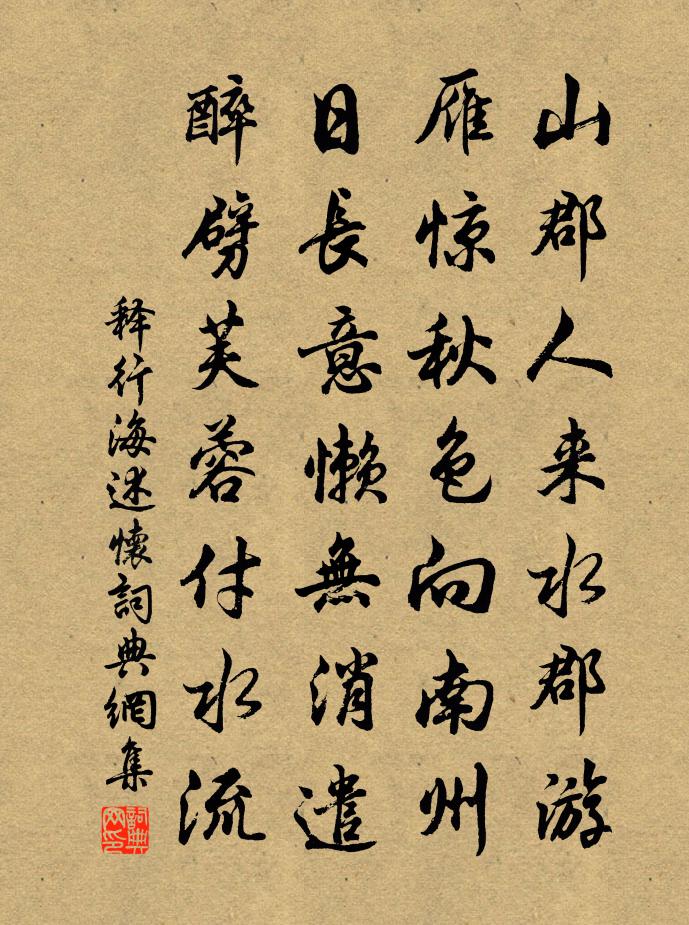 山郡人来水郡游
雁惊秋色向南州
日長意懒無消遣
醉劈芙蓉付水流
释行海述懷詞典網集
詞典网印